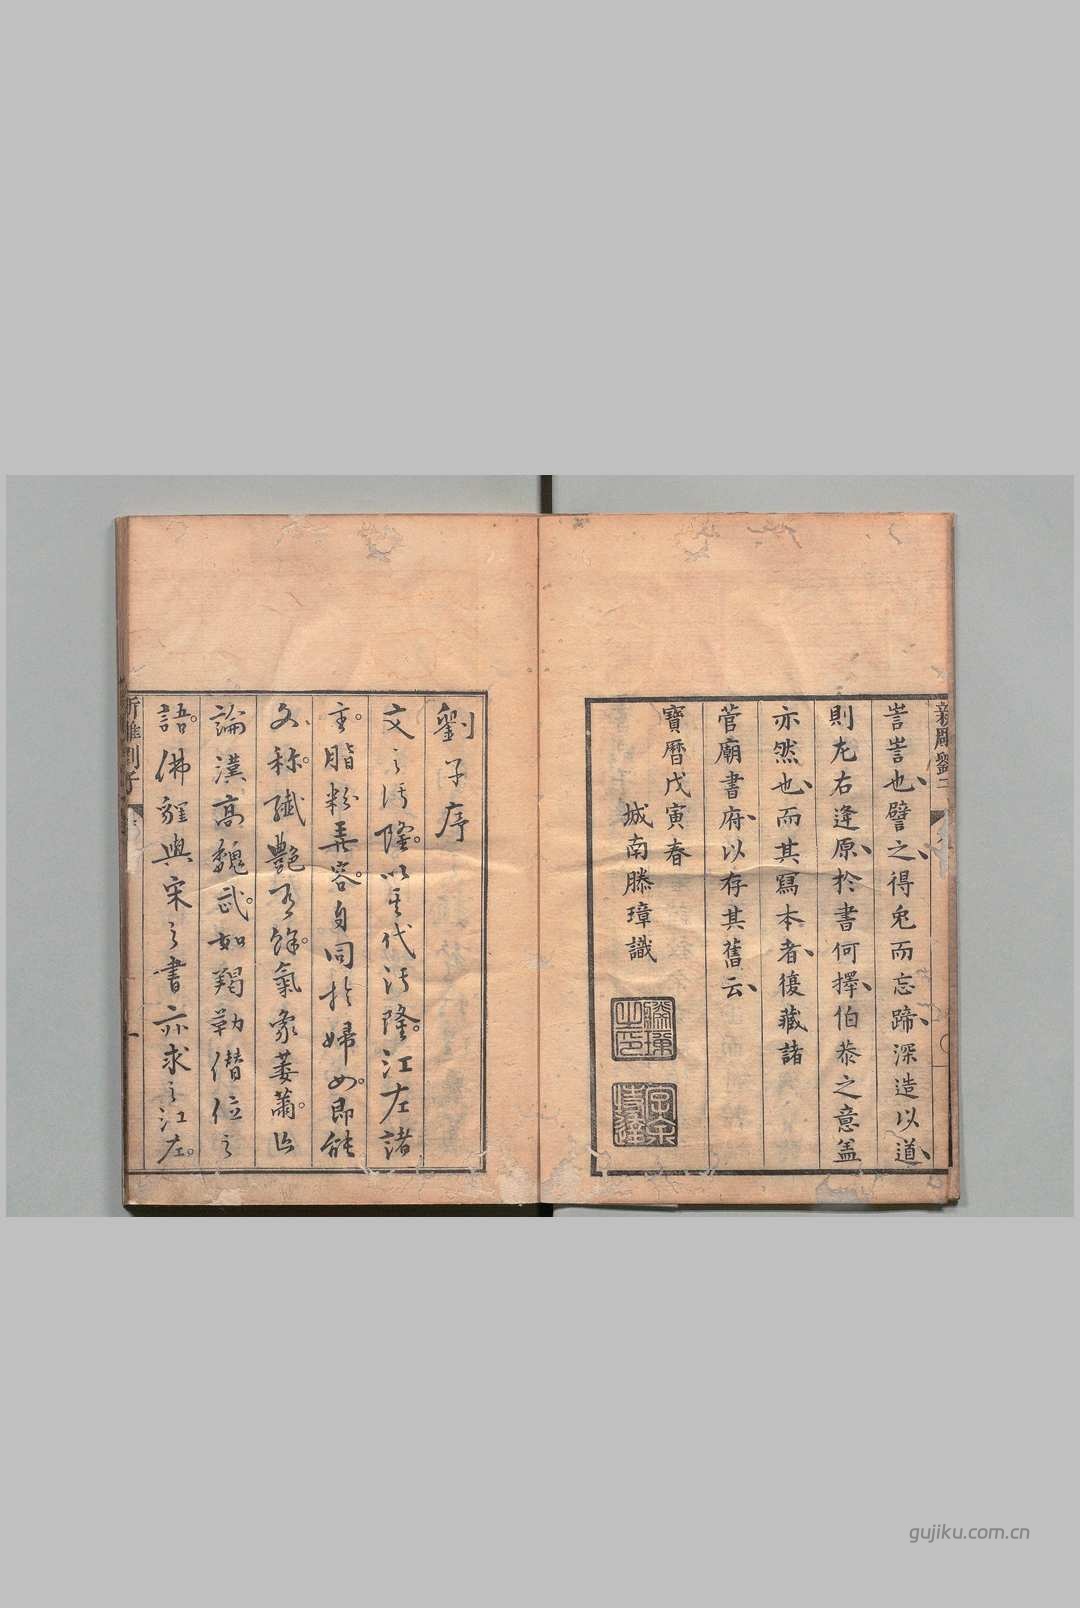 訾訾也譬之得兔而忘蹄深造以道
則左右逢原於書何擇伯恭之意盖
亦然也而其寫本者復藏諸
菅廟書府以存其舊云
寶曆戊寅春
城南滕璋識
劉子序
文之汚隆以其代汚隆江左諸
主脂粉其容自同於婦女即能
文称纎艶乃餘氣象萎薾
論漢高魏武如羯勒僭位之
語佛貍與宋之書亦求之江左
gujiku.com.cn